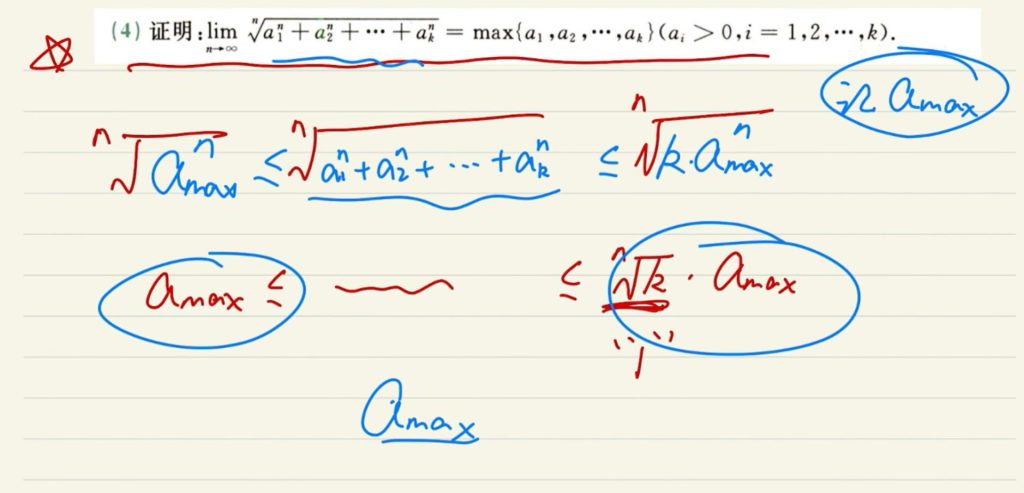 (4) 证明:lim_{n→∞} ⁿ√(a₁ⁿ + a₂ⁿ + ⋯ + a_kⁿ) = max{a₁,a₂,⋯,a_k}(a_i > 0,i = 1,2,⋯,k).
记 a_max
ⁿ√(a_maxⁿ) ≤ ⁿ√(a₁ⁿ+a₂ⁿ+⋯+a_kⁿ) ≤ ⁿ√(k·a_maxⁿ)
a_max ≤ ≤ ⁿ√k · a_max
"1"
a_max